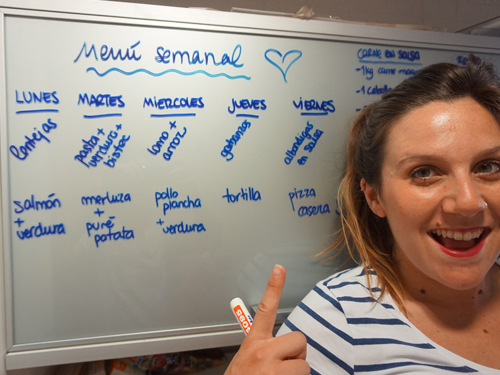 Menú semanal
CARNE EN SALSA
-1kg carne
-1
LUNES MARTES MIERCOLES JUEVES VIERNES
lentejas
pasta +
verdura +
bistec
lomo +
arroz
garbanzos
albondigas
en salsa
salmón
+
verdura
merluza
+
puré
patata
pollo
plancha
+ verdura
tortilla
pizza
casera